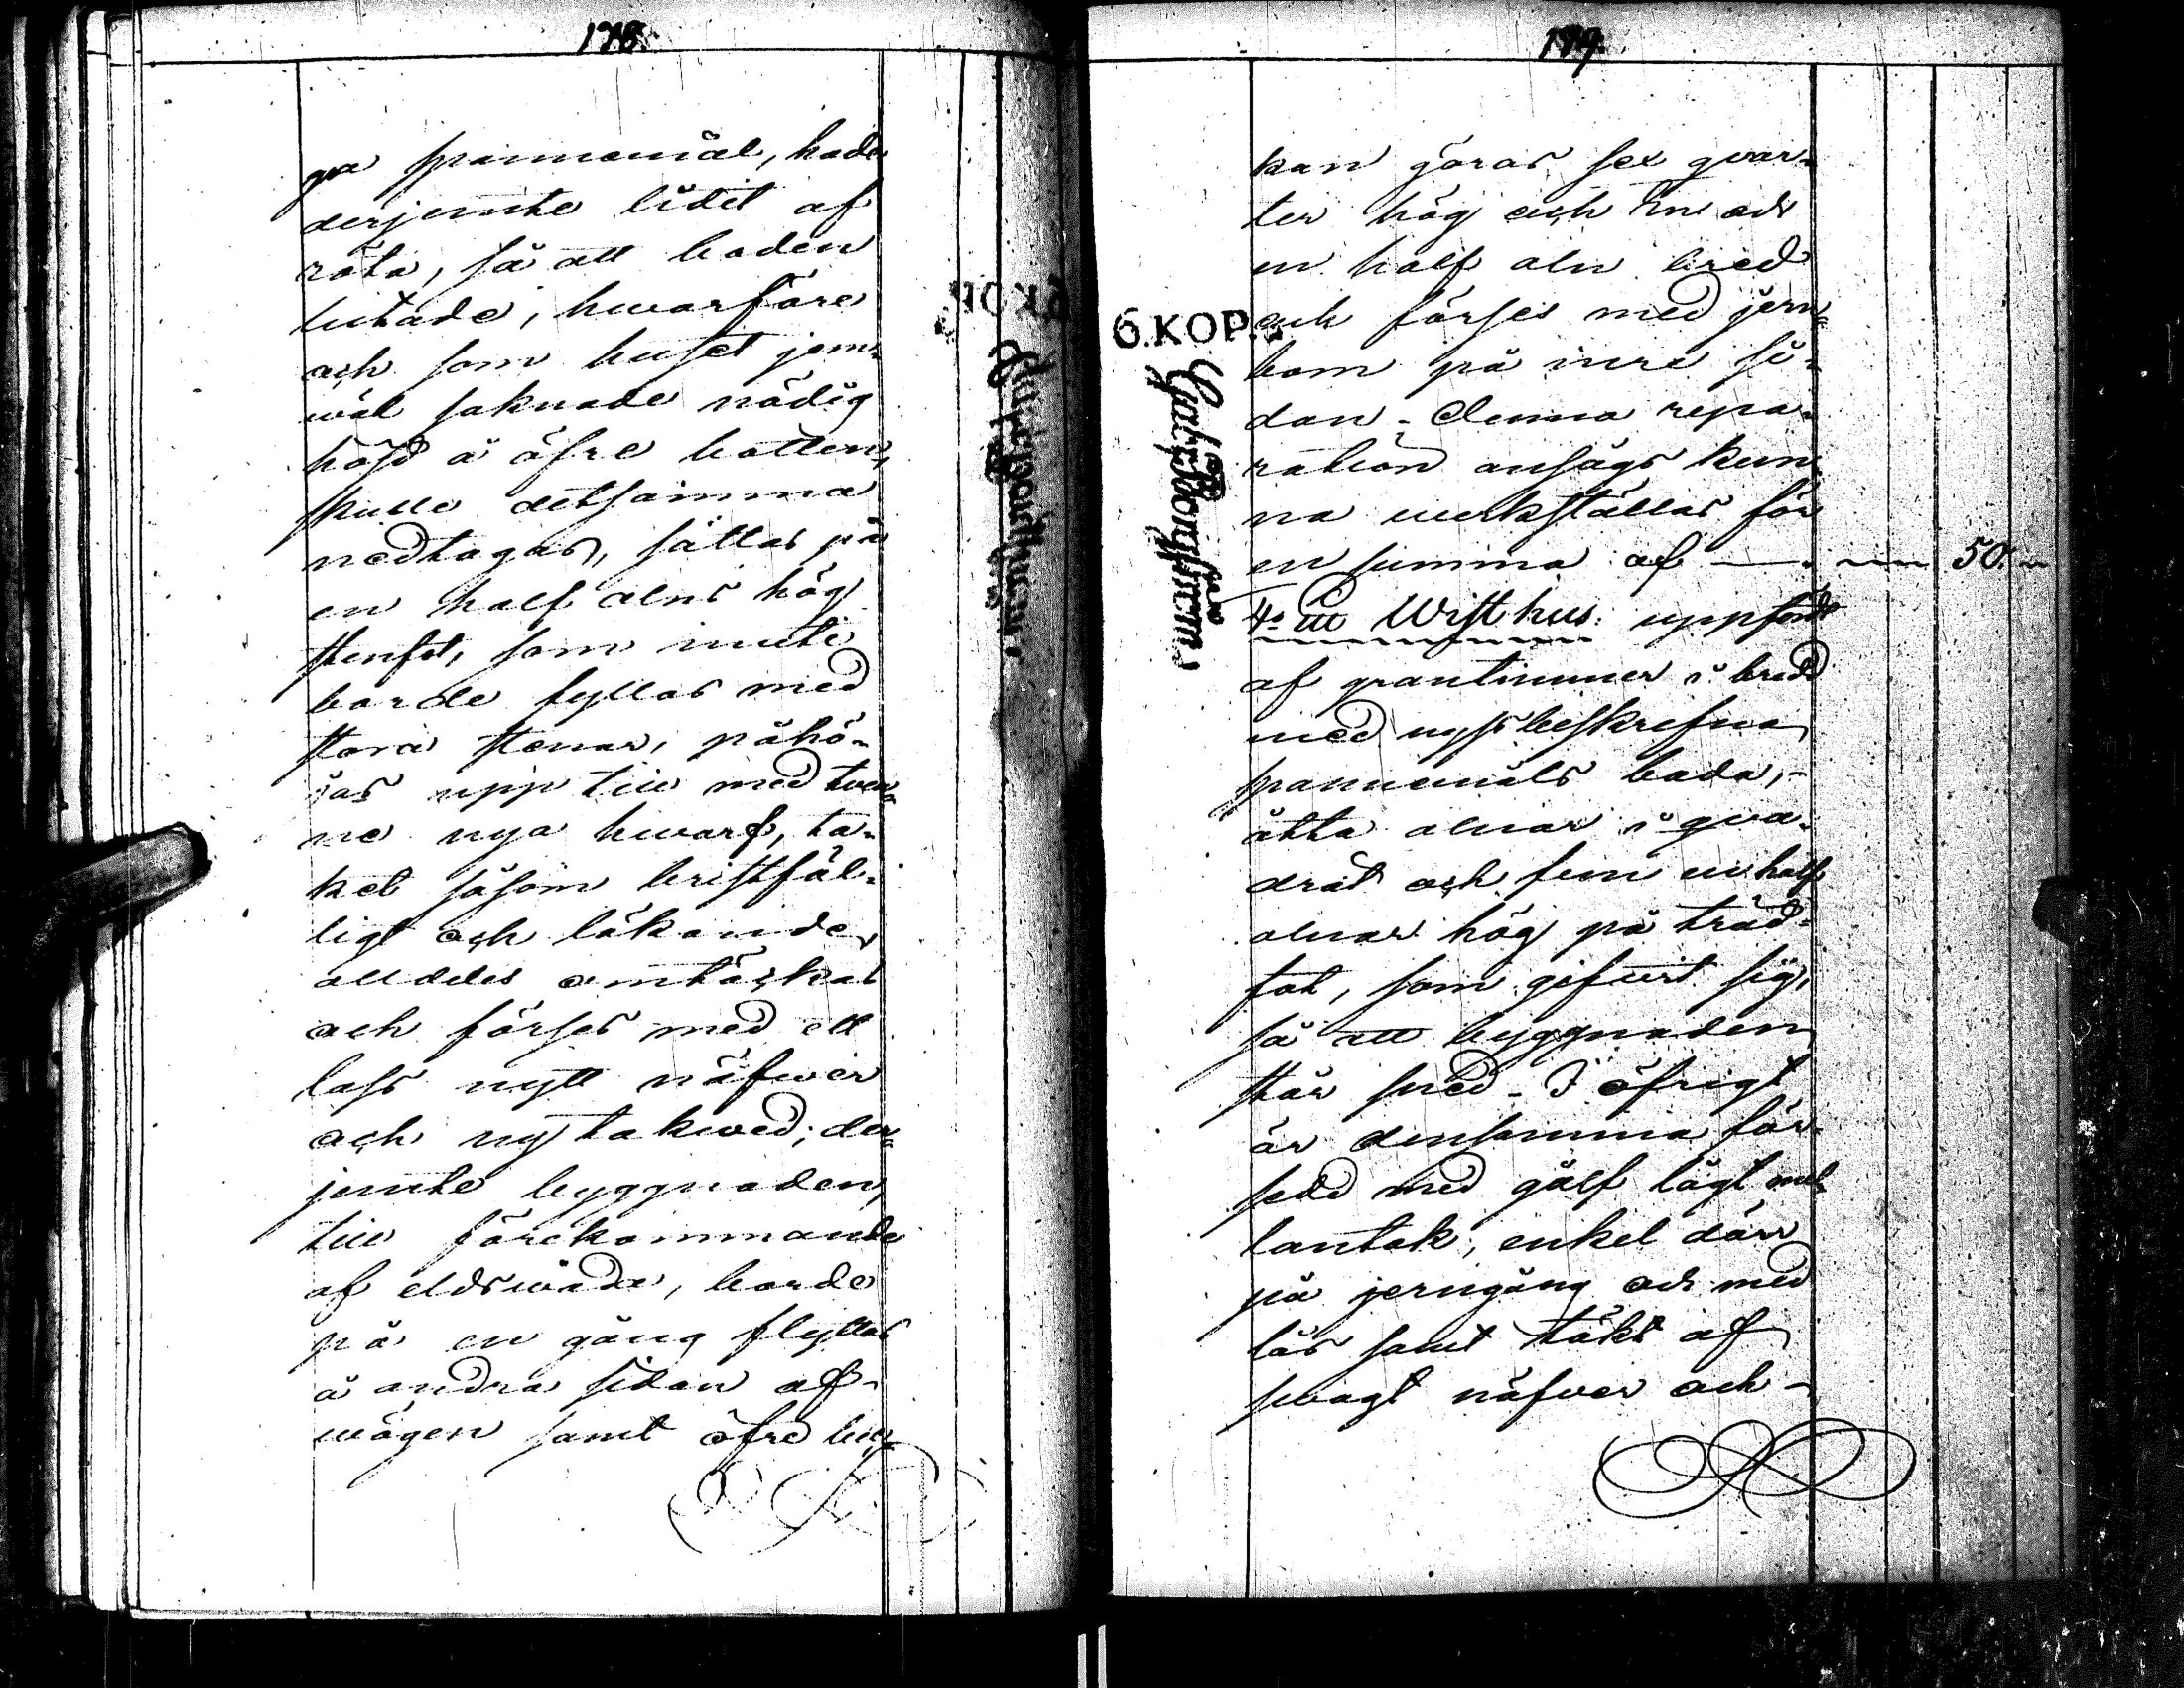 178.
på spannemål, hade
derjemte lidit af
röta, så att boden
lutade, hwarföre
och som huset jem-
wäl saknade nödig
höjd å öfre botten,
skulle detsamma
nedtagas, sättas på
en half alns hög
stenfot, som inuti
borde fyllas med
stora stenar, påhö-
jas upp till med twen-
ne nya hwarf, ta-
ket såsom bristfäl-
ligt och läkande,
alldeles omtäckas
och förses med ett
lass nytt näfwer
och ny takwed; der-
jemte byggnaden,
till förekommande
af eldswåda, borde
på en gång flyttas
å andra sidan af
wägen samt öfre
179.
kan göras sex qwar-
ter hög och och
en half aln bred
och förses med jern-
bom på inre si-
dan. Denna repa-
ration ansågs kun-
na werkställas för
en summa af — 50. "
4:o Ett Wisthus. uppfördt
af grantimmer i bredd
med nyss beskrefna
spannemåls boda,
åtta alnar i qwa-
drat och fem en half
alnar hög på träd-
fot, som gifwit sig,
så att byggnaden
står sned. I öfrigt
är densamma för-
sedd med golf lågt mel-
lantak, enkel dörr
på jerngång och med
lås samt täckt af
swagt näfwer och
6.KOP.S.